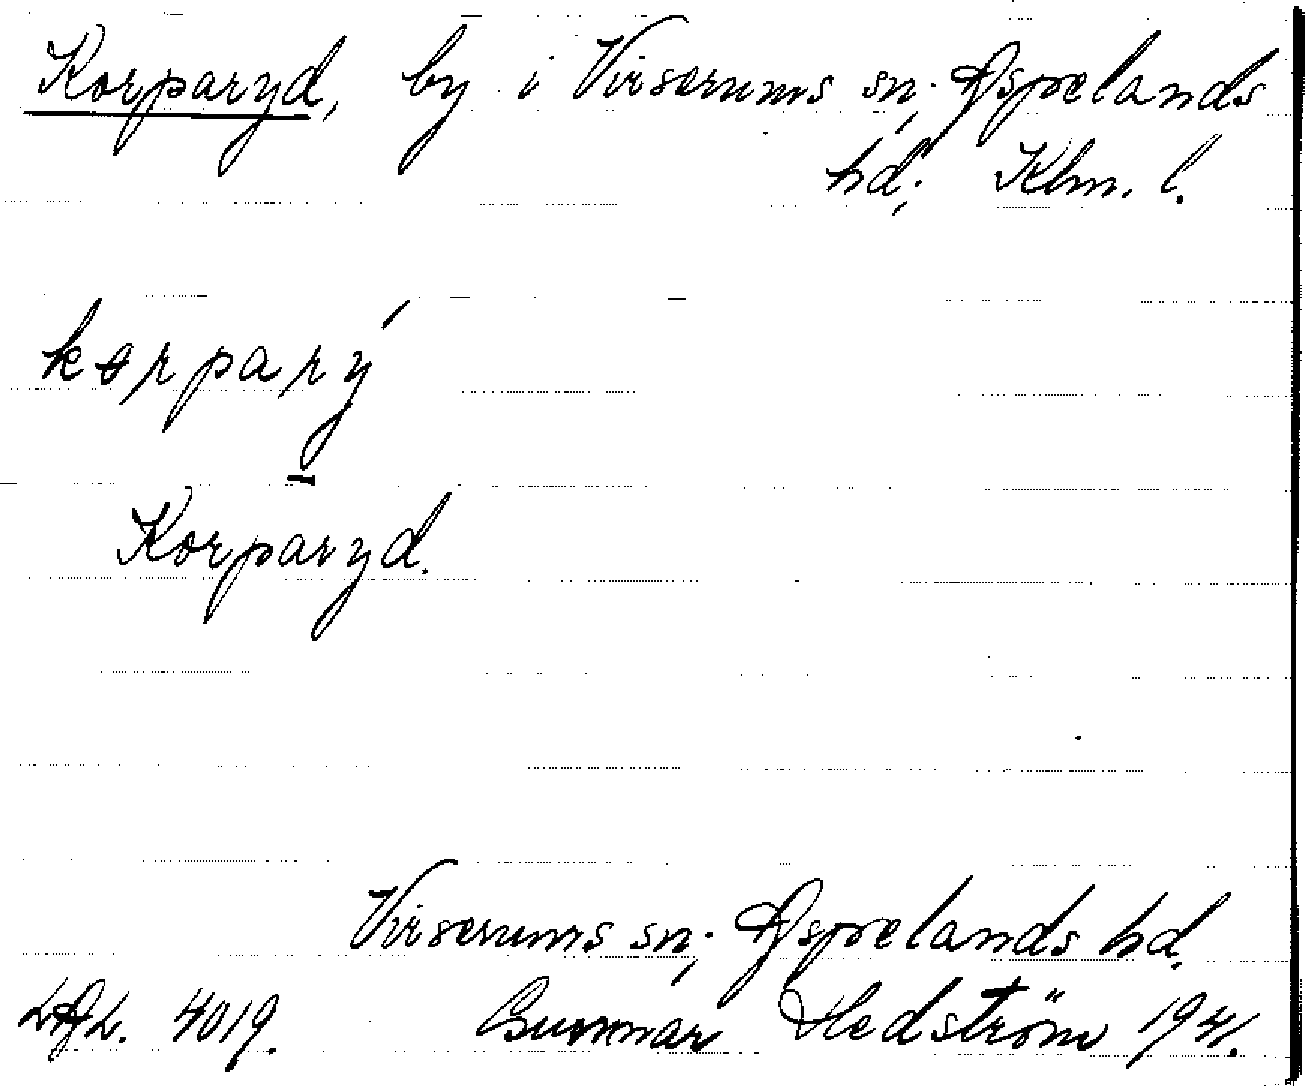 Korparyd, by i Virserums sn; Aspelands
hd; Klm. l.
korparý
Korparyd.
Virserums sn; Aspelands hd.
LAL. 4019. Gunnar Hedström 1941.